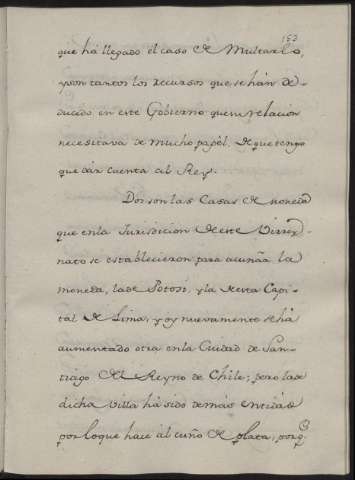 153
que há llegado el caso de Multarlo,
y son tantos los recursos que se hán de-
ducido en este Gobierno que su relacion
necesitava de mucho papel, de que tengo
que dár cuenta al Rey.
Dos son las Casas de moneda
que en la Jurisdicion de este Virrey-
nato se establecieron para acuñar la
moneda, la de Potosi, y la de esta Capi-
tal de Lima; y oy nuevamente se há
aumentado otra en la Ciudad de San-
tiago del Reyno de Chile; pero la de
dicha Villa há sido de más entidad
por lo que hace al cuño de plata; porq.e